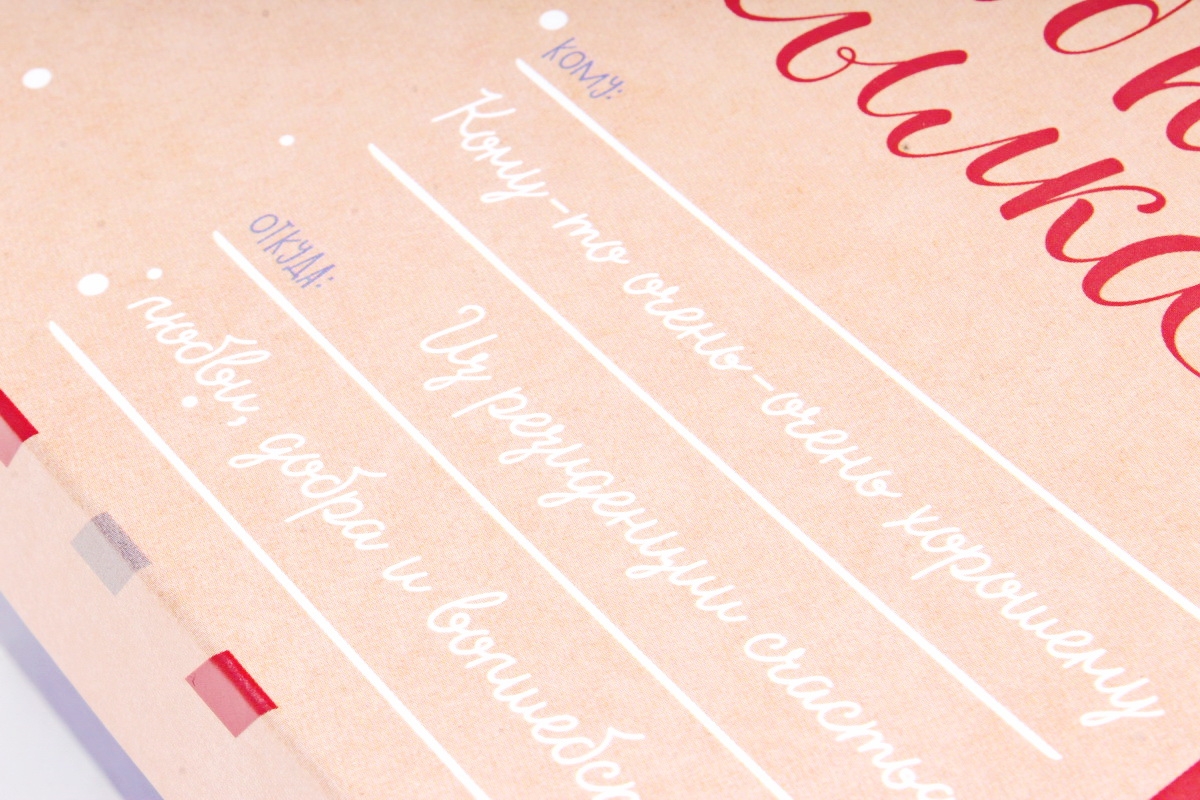 КОМУ:
Кому-то очень-очень хорошему
ОТКУДА:
Из резиденции счастья
любви, добра и